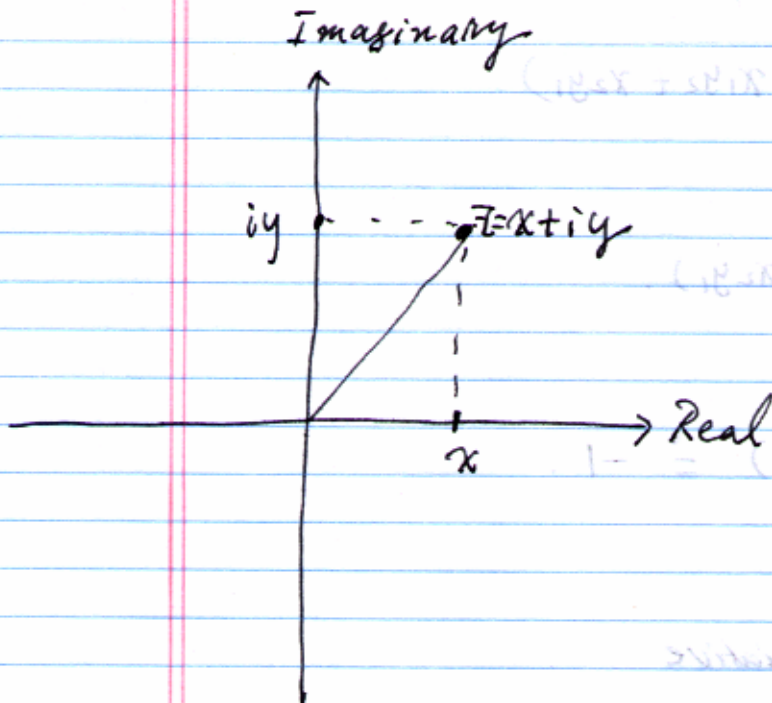 Imaginary
iy z=x+iy
Real
x